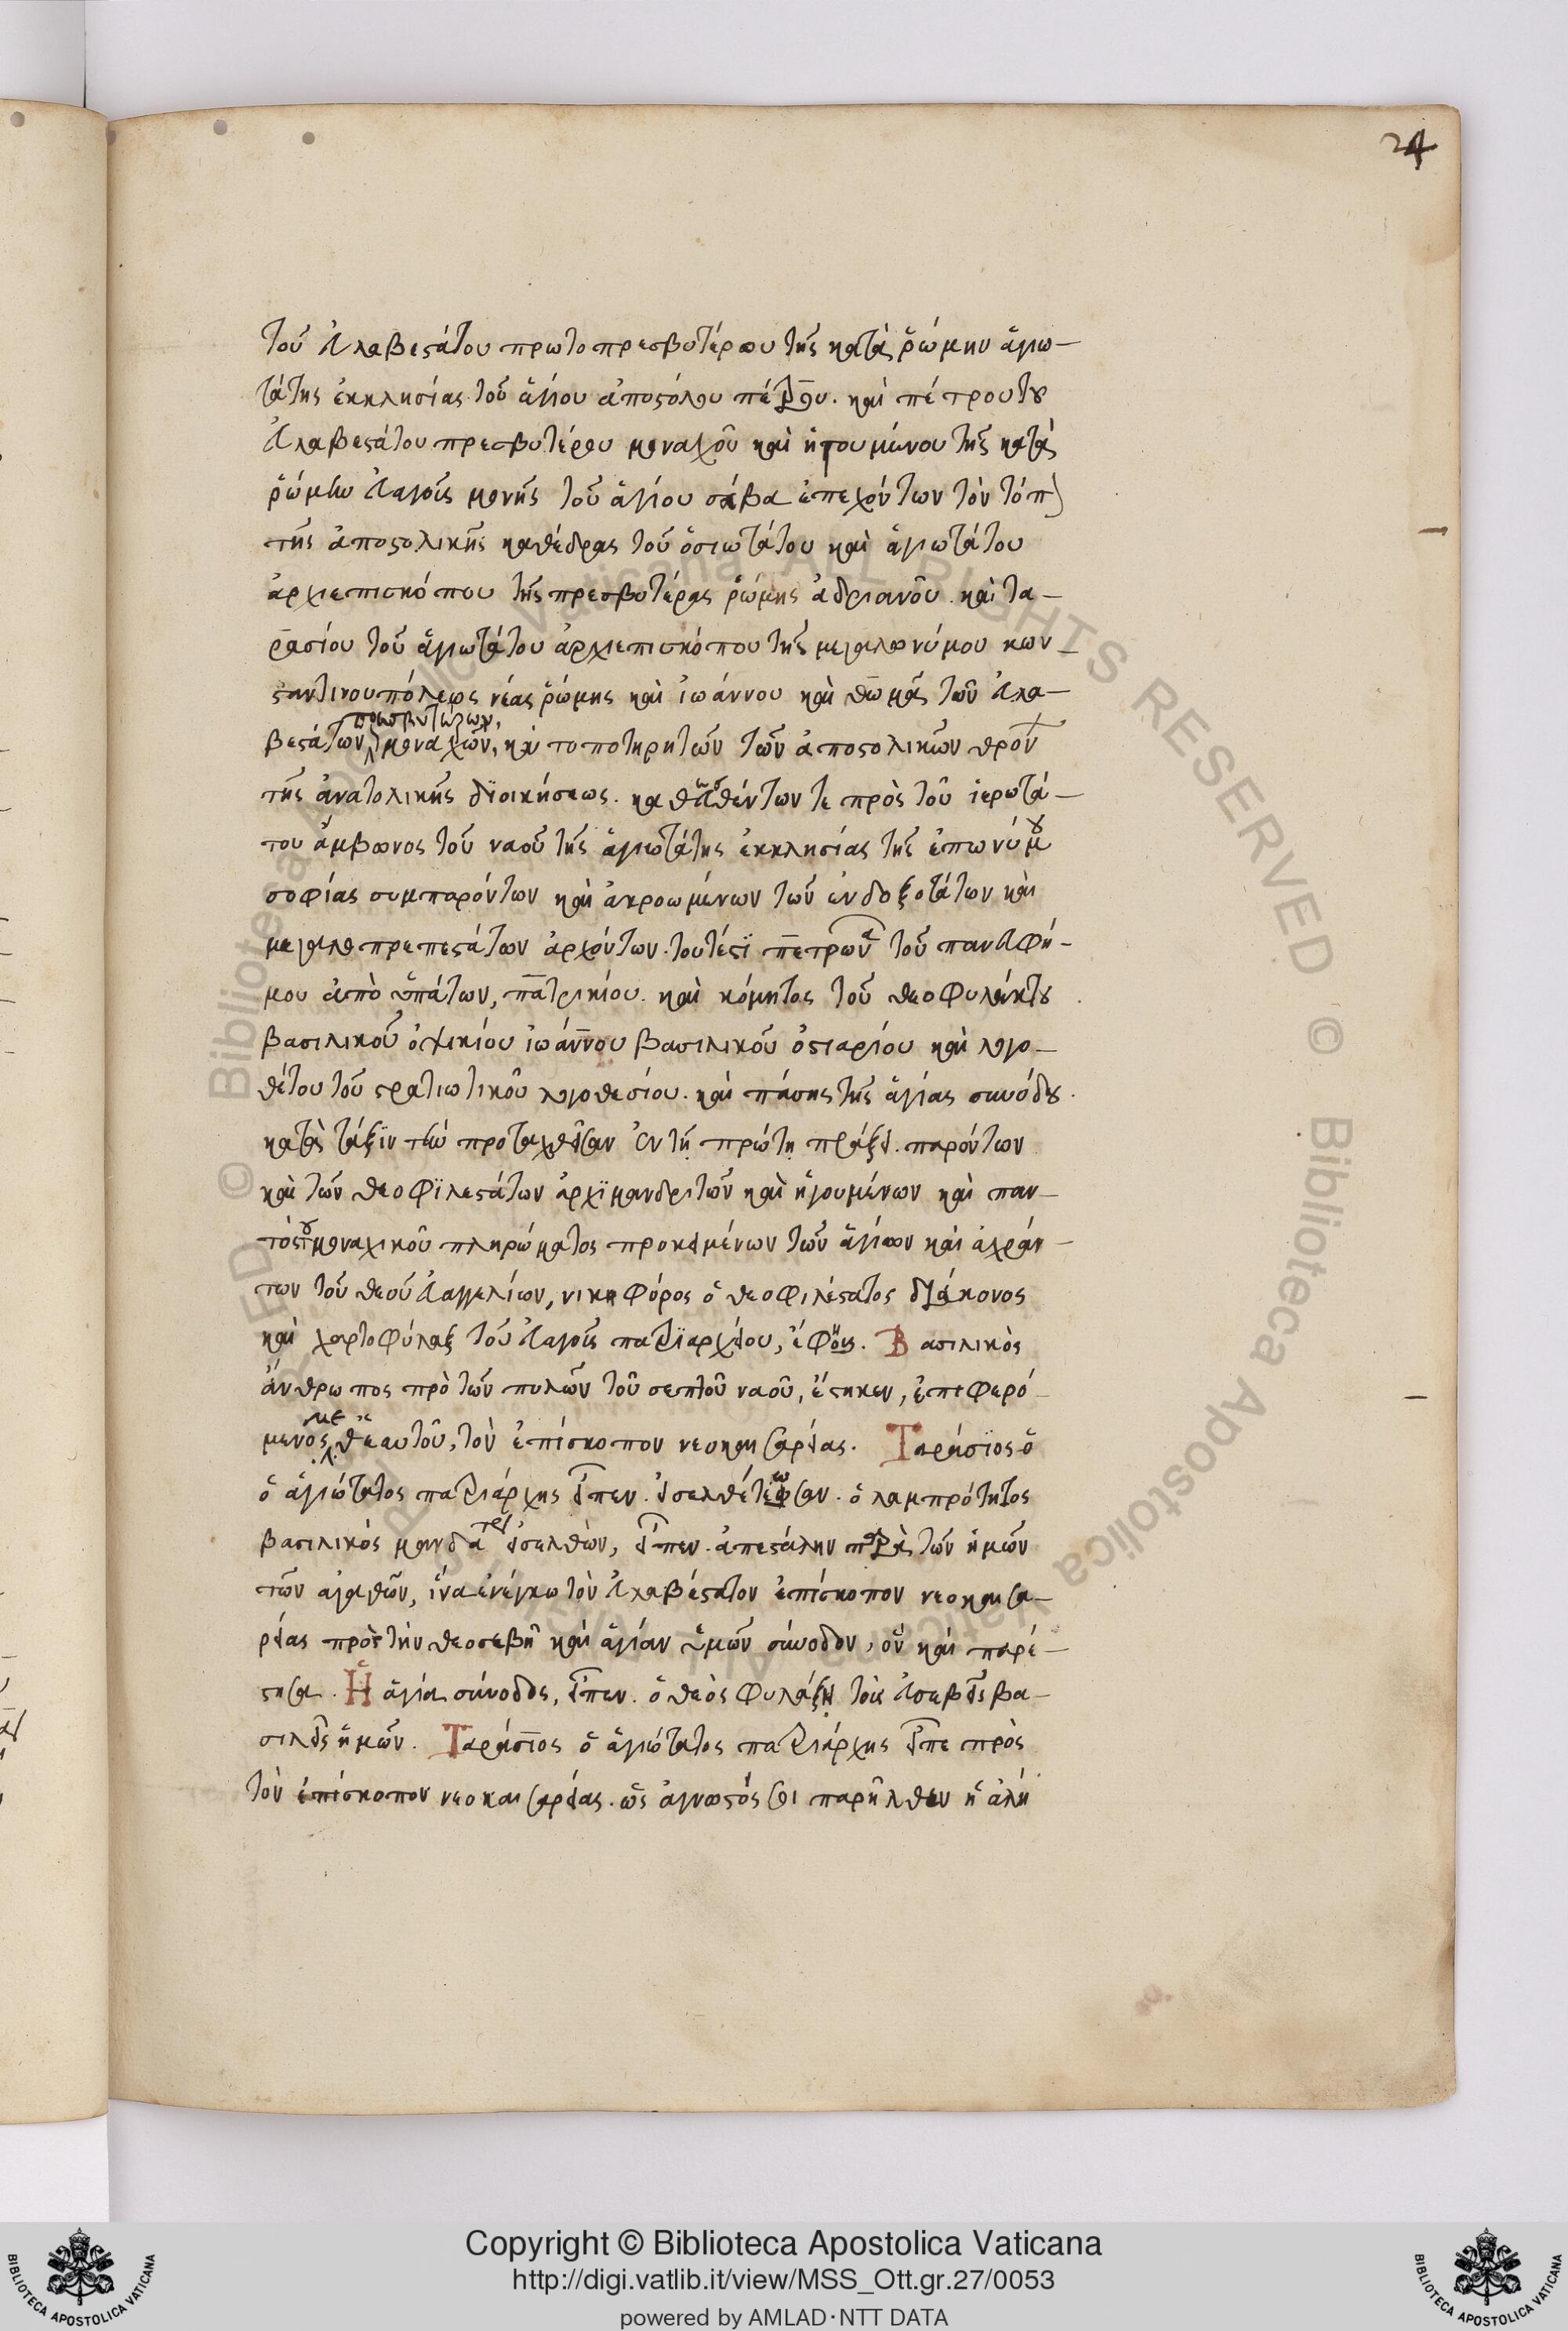 24
τοῦ εὐλαβεστάτου πρωτοπρεσβυτέρου τῆς κατὰ ῥώμην ἁγιω-
τάτης ἐκκλησίας τοῦ ἁγίου ἀποστόλου πέτρου. καὶ πέτρου τοῦ
εὐλαβεστάτου πρεσβυτέρου μοναχοῦ καὶ ἡγουμένου τῆς κατὰ
ῥώμην εὐαγοῦς μονῆς τοῦ ἁγίου σάβα ἐπεχόντων τὸν τόπ
τῆς ἀποστολικῆς καθέδρας τοῦ ὁσιωτάτου καὶ ἁγιωτάτου
ἀρχιεπισκόπου τῆς πρεσβυτέρας ῥώμης ἀδριανοῦ. καὶ τα-
ρασίου τοῦ ἁγιωτάτου ἀρχιεπισκόπου τῆς μεγαλωνύμου κων-
σταντινουπόλεως νέας ῥώμης καὶ ἰωάννου καὶ θωμᾶ τῶν εὐλα-
βεστάτων πρεσβυτέρων, μοναχῶν, καὶ τοποτηρητῶν τῶν ἀποστολικῶν θρόν
τῆς ἀνατολικῆς διοικήσεως. καθεσθέντων τε πρὸς τοῦ ἱερωτά-
του ἄμβωνος τοῦ ναοῦ τῆς ἁγιωτάτης ἐκκλησίας τῆς ἐπωνύμου
σοφίας συμπαρόντων καὶ ἀκροωμένων τῶν ἐνδοξοτάτων καὶ
μεγαλοπρεπεστάτων ἀρχόντων. τουτέστι πετρωνᾶ τοῦ πανευφή-
μου ἀπὸ ὑπάτων, πατρικίου. καὶ κόμητος τοῦ θεοφυλάκτου
βασιλικοῦ ὀψικίου ἰωάννου βασιλικοῦ ὀστιαρίου καὶ λογο-
θέτου τοῦ στρατιωτικοῦ λογοθεσίου. καὶ πάσης τῆς ἁγίας συνόδου.
κατὰ τάξιν τὴν προταχθεῖσαν ἐν τῇ πρώτῃ πράξει. παρόντων
καὶ τῶν θεοφιλεστάτων ἀρχιμανδριτῶν καὶ ἡγουμένων καὶ παν-
τὸς τοῦ μοναχικοῦ πληρώματος προκειμένων τῶν ἁγίων καὶ ἀχράν-
των τοῦ θεοῦ εὐαγγελίων, νικηφόρος ὁ θεοφιλέστατος διάκονος
καὶ χαρτοφύλαξ τοῦ εὐαγοῦς πατριαρχείου, ἔφη. Βασιλικὸς
ἄνθρωπος πρὸ τῶν πυλῶν τοῦ σεπτοῦ ναοῦ, ἕστηκεν, ἐπιφερό-
μενος μεθ' ἑαυτοῦ, τὸν ἐπίσκοπον νεοκαισαρείας. Ταράσιος ὁ
ὁ ἁγιώτατος πατριάρχης εἶπεν. εἰσελθέτωσαν. ὁ λαμπρότητος
βασιλικὸς μανδάτωρ εἰσελθὼν, εἶπεν. ἀπεστάλην παρὰ τῶν ἡμῶν
τῶν ἀγαθῶν, ἵνα ἐνέγκω τὸν εὐλαβέστατον ἐπίσκοπον νεοκαισα-
ρείας πρὸς τὴν θεοσεβῆ καὶ ἁγίαν ὑμῶν σύνοδον, ὃν καὶ παρέ-
στησα. Ἡ ἁγία σύνοδος, εἶπεν. ὁ θεὸς φυλάξῃ τοὺς εὐσεβεῖς βα-
σιλεῖς ἡμῶν. Ταράσιος ὁ ἁγιώτατος πατριάρχης εἶπε πρὸς
τὸν ἐπίσκοπον νεοκαισαρείας. ὡς ἀγνωστός σοι παρῆλθεν ἡ ἀλή
Copyright © Biblioteca Apostolica Vaticana
http://digi.vatlib.it/view/MSS_Ott.gr.27/0053
powered by AMLAD·NTT DATA